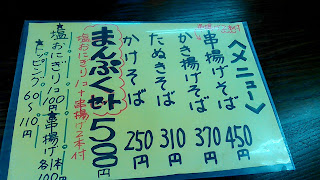 〈メニュー〉
串揚げそば 450円
かき揚げそば 370円
たぬきそば 310円
かけそば 250円
まんぷくセット 500円
塩おにぎり1コ、串揚げ1本付
塩おにぎり1コ100円
串揚げ1本100円
トッピング 各60~110円